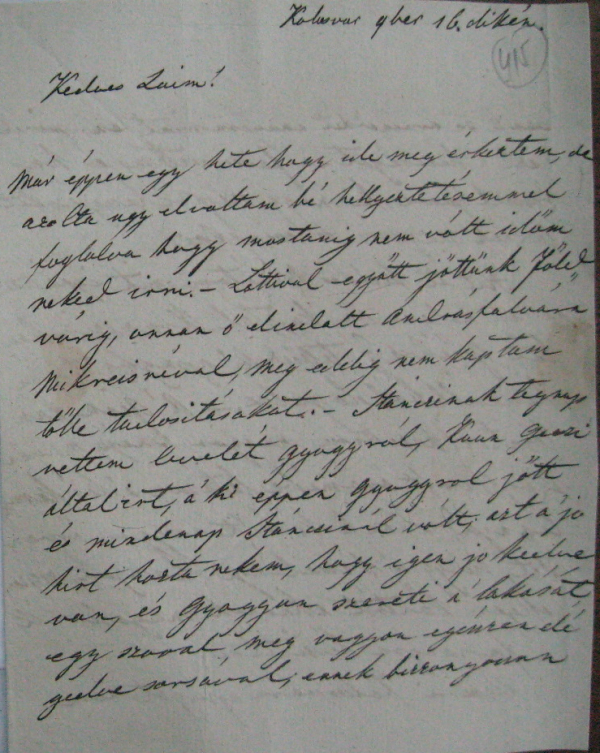 Kolosvar 9ber 16. dikán.
415
Kedves Luim!
Már éppen egy hete hogy ide meg érkeztem, de
azolta ugy el voltam bé hellyeztetésemmel
foglalva hogy mostanig nem vólt időm
neked irni. – Lottival együtt jöttünk Föld
várig, onnan ő el indult Andrásfalvára
Mikeisnéval, meg eddig nem kaptam
tőlle tudositásokat. – Stáncsinak tegnap
vettem levelét gyogyról, Kuun Geczi
által irt, á ki eppen Gyogyrol jött
és mindenap Stáncsinál vólt; azt á jo
hirt hozta nekem, hogy igen jo kedve
van, és Gyogyon szereti á lakását,
egy szoval meg vagyon egészen elé
gedve sorsával; ennek bizonyosan